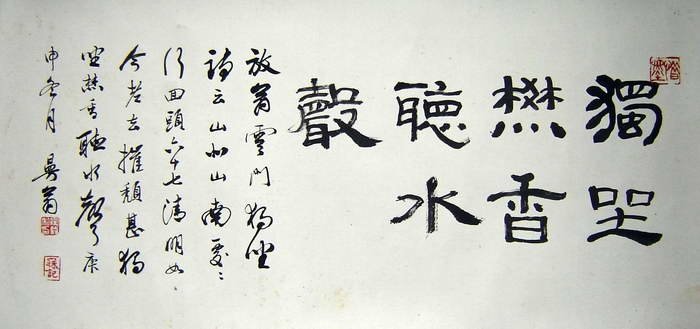 獨坐
燓香
聽水
聲
放翁雲門獨坐
詩云山北山南處〻
行回頭六十七清明如
今老去摧頹甚獨
坐焚香聽水聲庚
申冬月 曼翁